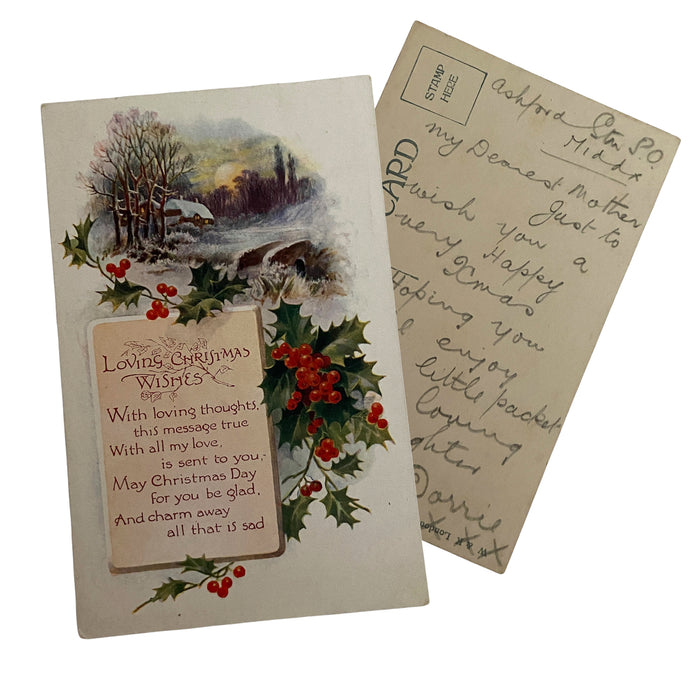 LOVING CHRISTMAS
WISHES
With loving thoughts,
this message true
With all my love,
is sent to you,
May Christmas Day
for you be glad,
And charm away
all that is sad
STAMP
HERE
CARD
Ashford Stn P.O
Middx
My Dearest Mother
Just to
wish you a
very Happy
Xmas
Hoping you
enjoy
little packet
loving
ghter
Dorrie
X X X
W & K London